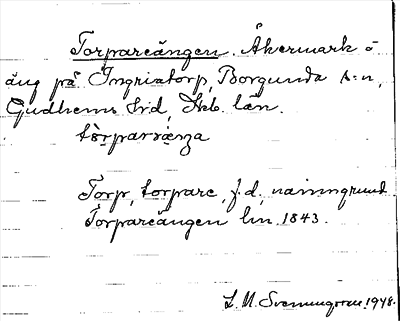 Torpareängen. Åkermark o
äng på Ingrixtorp, Borgunda s:n,
Gudhems hrd, Skb. län.
tòrparæŋa
Torp, torpare, f.d., namngrund
Torpareängen lm. 1843.
L. M. Svenungsson 1948.